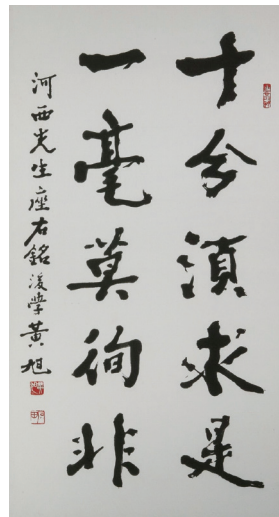 十分須求是
一毫莫徇非
河西先生座右銘 後學黃旭